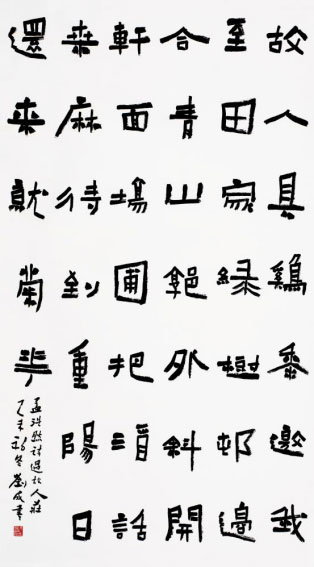 故人具鷄黍邀我
至田家緑樹邨邊
合青山郭外斜開
軒面場圃把酒話
桒麻待到重陽日
還来就菊華
孟浩然詩過故人莊
乙未初冬劉成書